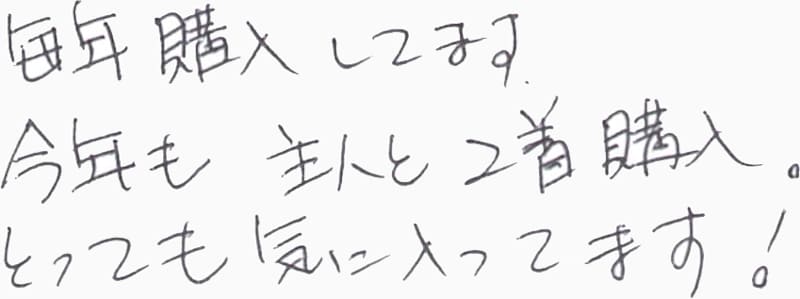 毎年購入してます.
今年も 主人と 2着購入。
とっても気に入ってます!